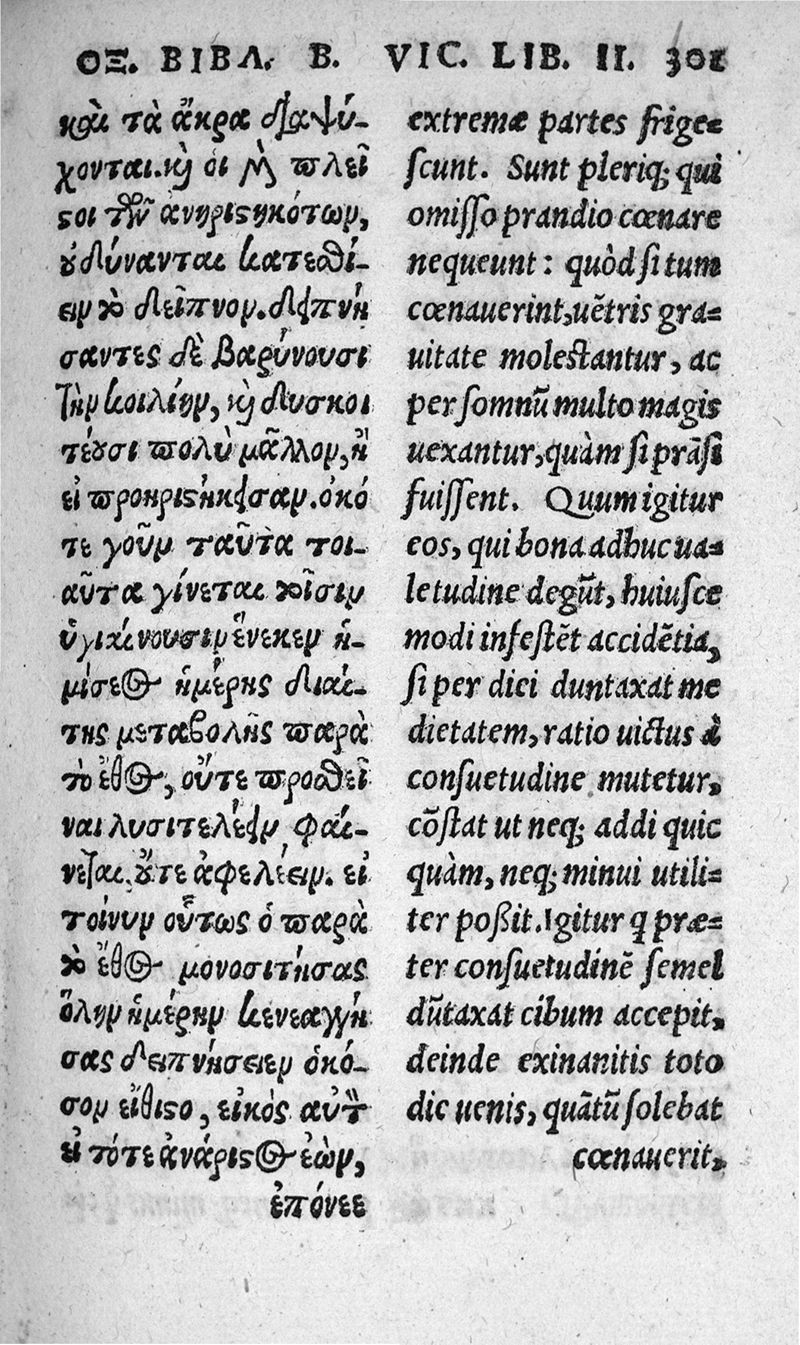 ΟΞ. ΒΙΒΛ. Β. VIC. LIB. II. 301
καὶ τὰ ἄκρα διαψύ-
χονται. καὶ οἱ μὲν πλεῖ
ϛοι τῶν ἀνηριϛηκότων,
οὐ δύνανται κατεσθί-
ειν τὸ δεῖπνον. δειπνή
σαντες δὲ βαρύνουσι
τὴν κοιλίην, καὶ δυσκοι
τέουσι πολὺ μᾶλλον, ἢ
εἰ προηριϛήκεισαν. ὁκό
τε γοῦν ταῦτα τοι-
αῦτα γίνεται τοῖσιν
ὑγιαίνουσιν ἕνεκεν ἡ-
μίσεος ἡμέρης διαί-
της μεταβολῆς παρὰ
τὸ ἔθος, οὔτε προσθεῖ
ναι λυσιτελέειν φαί-
νεται, οὔτε ἀφελέειν. εἰ
τοίνυν οὗτος ὁ παρὰ
τὸ ἔθος μονοσιτήσας
ὅλην ἡμέρην κενεαγγή
σας δειπνήσειεν ὁκό-
σον εἴθιϛο, εἰκὸς αὐτὸν
εἰ τότε ἀνάριϛος ἐὼν,
ἐπόνεε
extremæ partes frige=
ſcunt. Sunt pleriq; qui
omiſſo prandio cœnare
nequeunt: quòd ſi tum
cœnauerint, uētris gra=
uitate moleſtantur, ac
per ſomnū multo magis
uexantur, quàm ſi prāſi
fuiſſent. Quum igitur
eos, qui bona adhuc ua=
letudine degūt, huiuſce
modi infeſtēt accidētia,
ſi per diei duntaxat me
dietatem, ratio uictus à
conſuetudine mutetur,
cōſtat ut neq; addi quic
quàm, neq; minui utili=
ter poßit. Igitur q præ=
ter conſuetudinē ſemel
dūtaxat cibum accepit,
deinde exinanitis toto
die uenis, quātū ſolebat
cœnauerit,